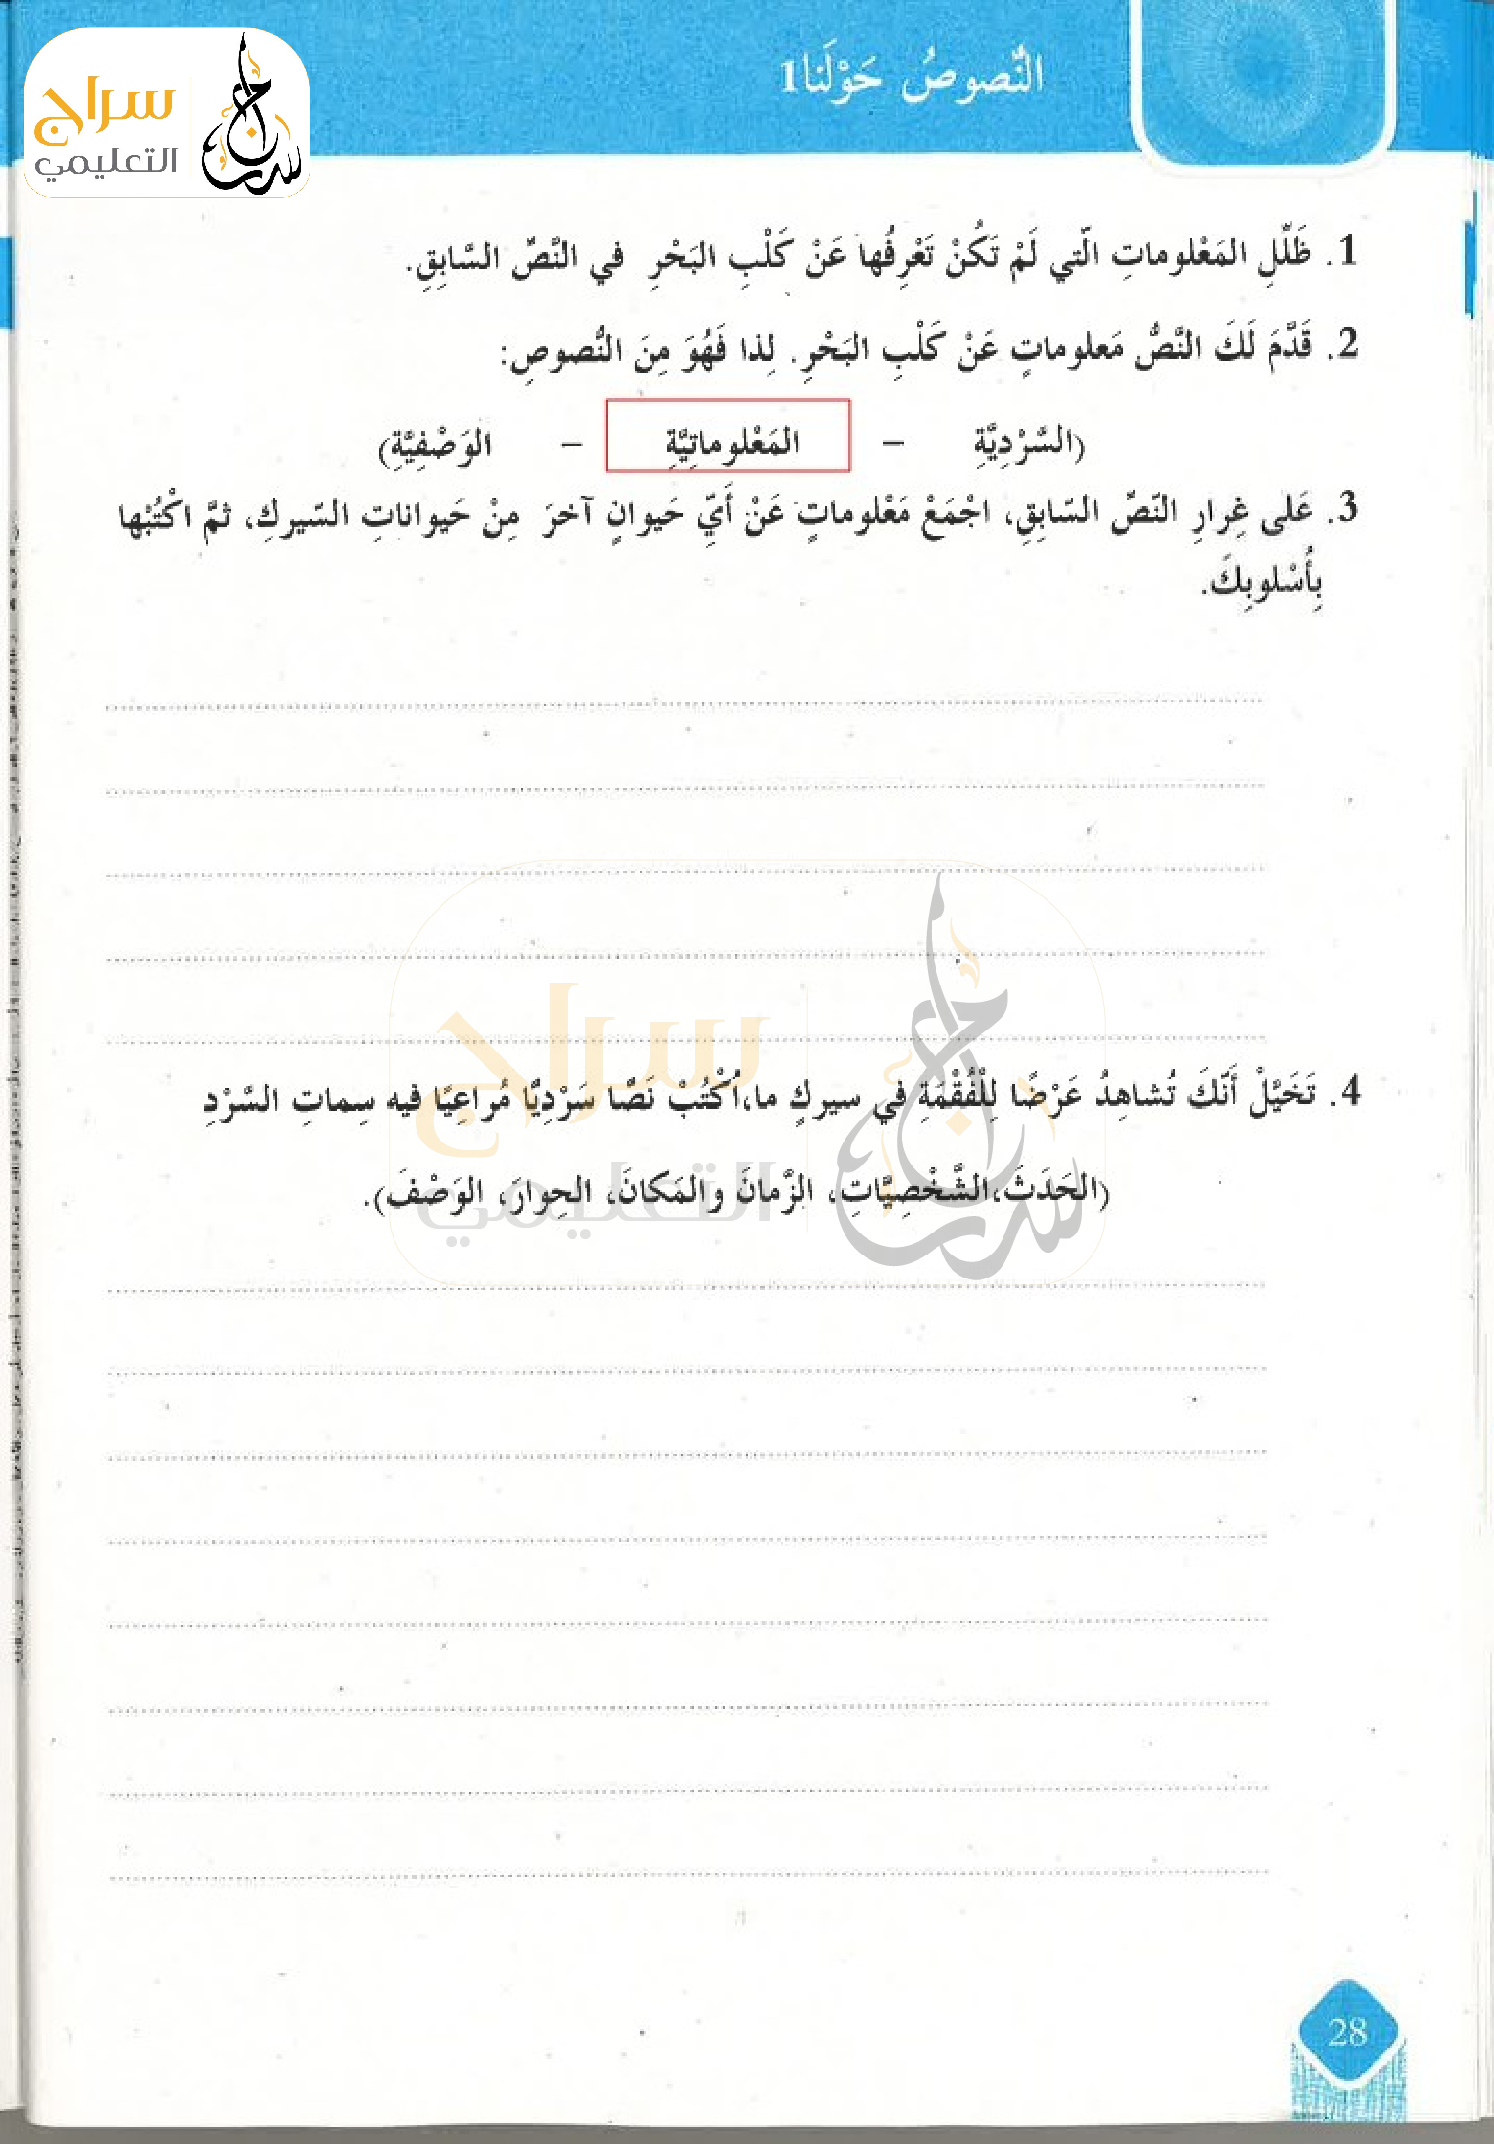 سراج
التعليمي
النُّصوصُ حَوْلَنا1
1. ظَلّلِ المَعْلوماتِ الّتي لَمْ تَكُنْ تَعْرِفُها عَنْ كَلْبِ البَحْرِ في النَّصِّ السَّابِقِ.
2. قَدَّمَ لَكَ النَّصُّ مَعلوماتٍ عَنْ كَلْبِ البَحْرِ. لِذا فَهُوَ مِنَ النُّصوصِ:
(السَّرْدِيَّةِ – المَعْلوماتِيَّةِ – الوَصْفِيَّةِ)
3. عَلى غِرارِ النّصِّ السّابِقِ، اجْمَعْ مَعْلوماتٍ عَنْ أَيِّ حَيوانٍ آخرَ مِنْ حَيواناتِ السّيركِ، ثمَّ اكْتُبْها
بِأُسْلوبِكَ.
4. تَخَيَّلْ أَنّكَ تُشاهِدُ عَرْضًا لِلْفُقْمَةِ في سيركٍ ما،اُكْتُبْ نَصًّا سَرْدِيًّا مُراعِيًا فيه سِماتِ السَّرْدِ
(الحَدَثَ،الشَّخْصِيَّاتِ، الزّمانَ والمَكانَ، الحِوارَ، الوَصْفَ).
سراج
التعليمي
28